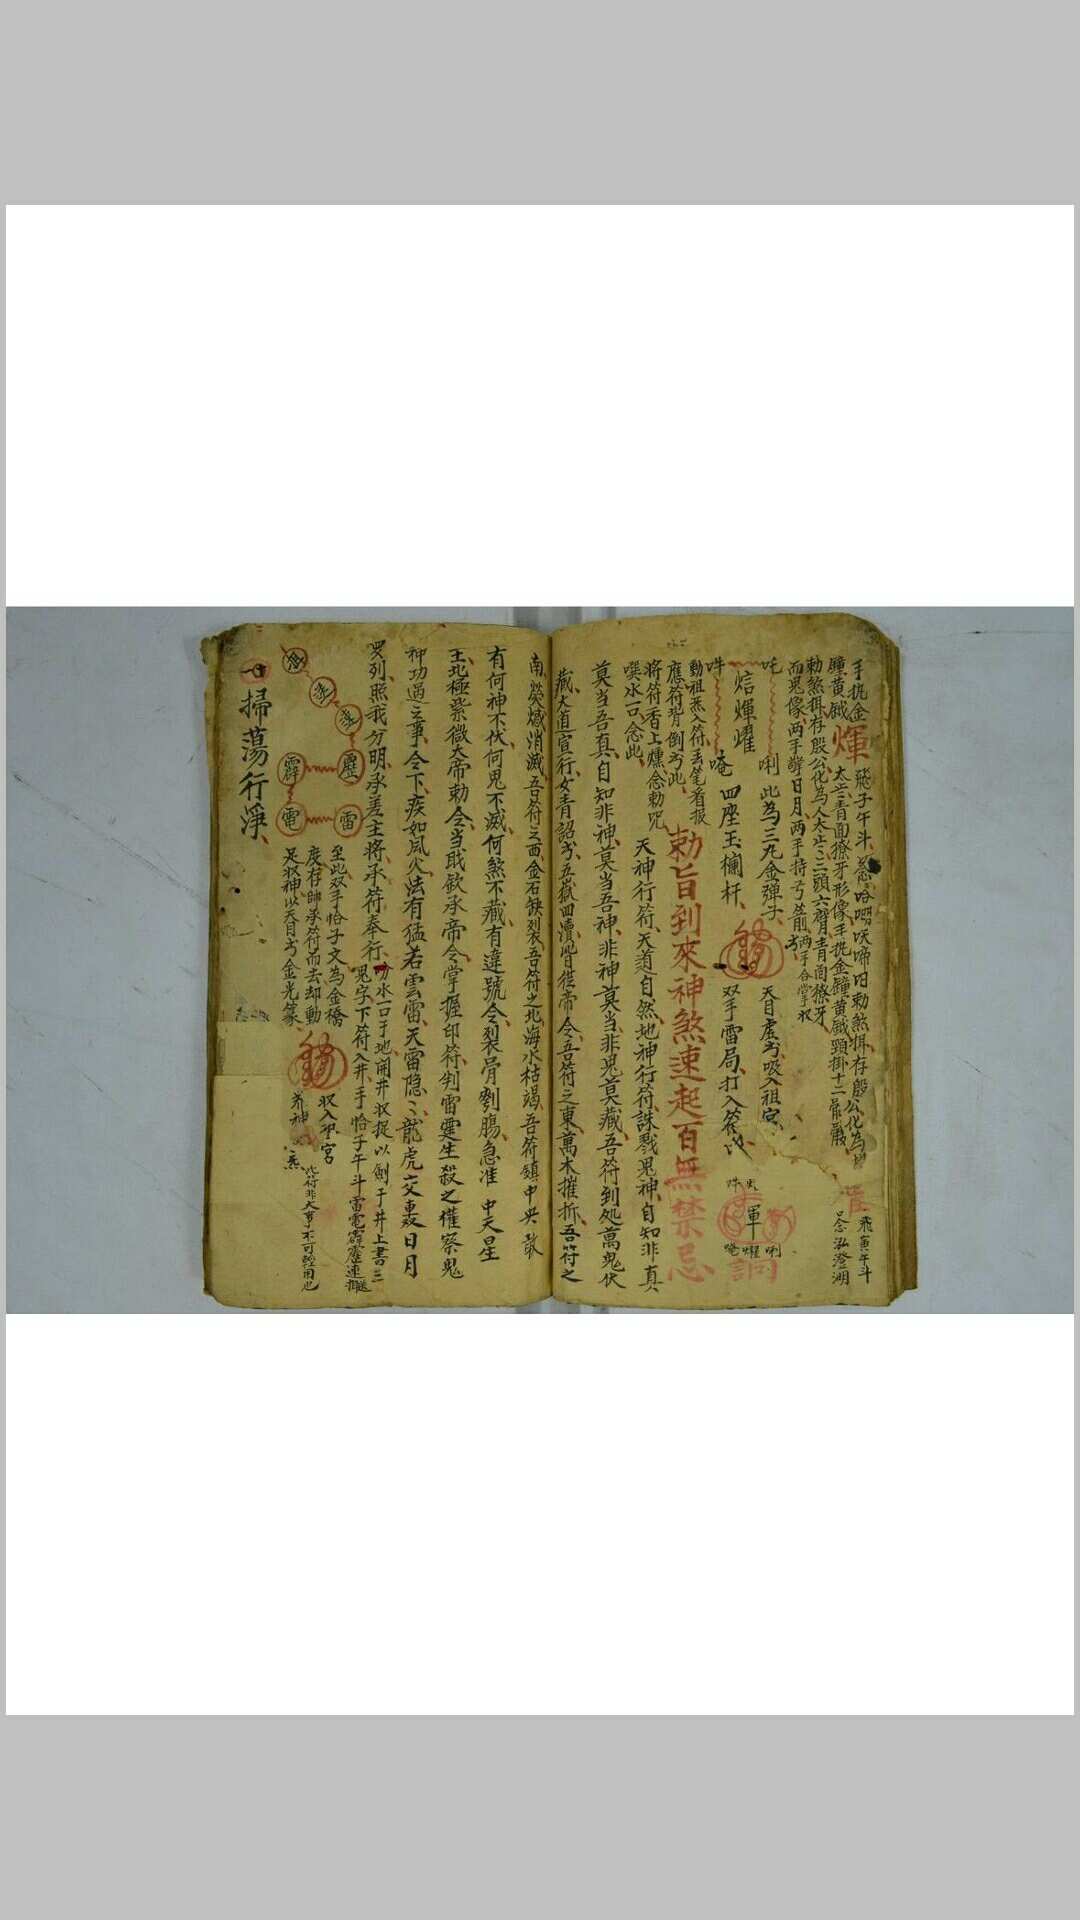 手執金
鐘黃鉞
煇
飛子午斗
太歲青面獠牙形像手執金鐘黃鉞頸掛十二骷髏
飛寅午斗
念泓澄湖
勅煞拱存殷公化為人太歲三頭六臂青面獠牙
而鬼像两手擎日月两手持弓箭两手合掌
吒
唎
此為三九金彈子
天目虚書吸入祖宮
焰煇耀
吽
唵
四座玉欄杆
双手雷局打入符
煇
動祖炁入符丢笔看报
應符背倒書此
勅旨到來神煞速起百無禁忌
將符香上燻念勅咒
噀水一口念此
天神行符天道自然地神行符誅戮鬼神自知非真
莫当吾真自知非神莫当吾神非神莫当非鬼莫藏吾符到処萬鬼伏
藏大道宣行女青詔書五嶽四瀆皆從帝令吾符之東萬木摧折吾符之
南熒惑消滅吾符之西金石缺列吾符之北海水枯竭吾符鎮中央敢
有何神不伏何鬼不滅何煞不藏有違號令裂骨劉腸急准
中天星
主北極紫微大帝勅令当職欽承帝令掌握印符判雷霆生殺之權察鬼
神功過之事令下疾如風火法有猛若雲雷天雷隐々龍虎交轟日月
罗列照我分明承差主將承符奉行
水一口于地開井収捉以劍于井上書三
鬼字下符入井手恰子午斗雷電霹靂速
靂
雷
霹
電
至此双手恰子文為金橋
度存帥承符而去却動
足収神以天目書金光篆
収入中宮
养神
此符非大事不可軽用也
一掃蕩行淨